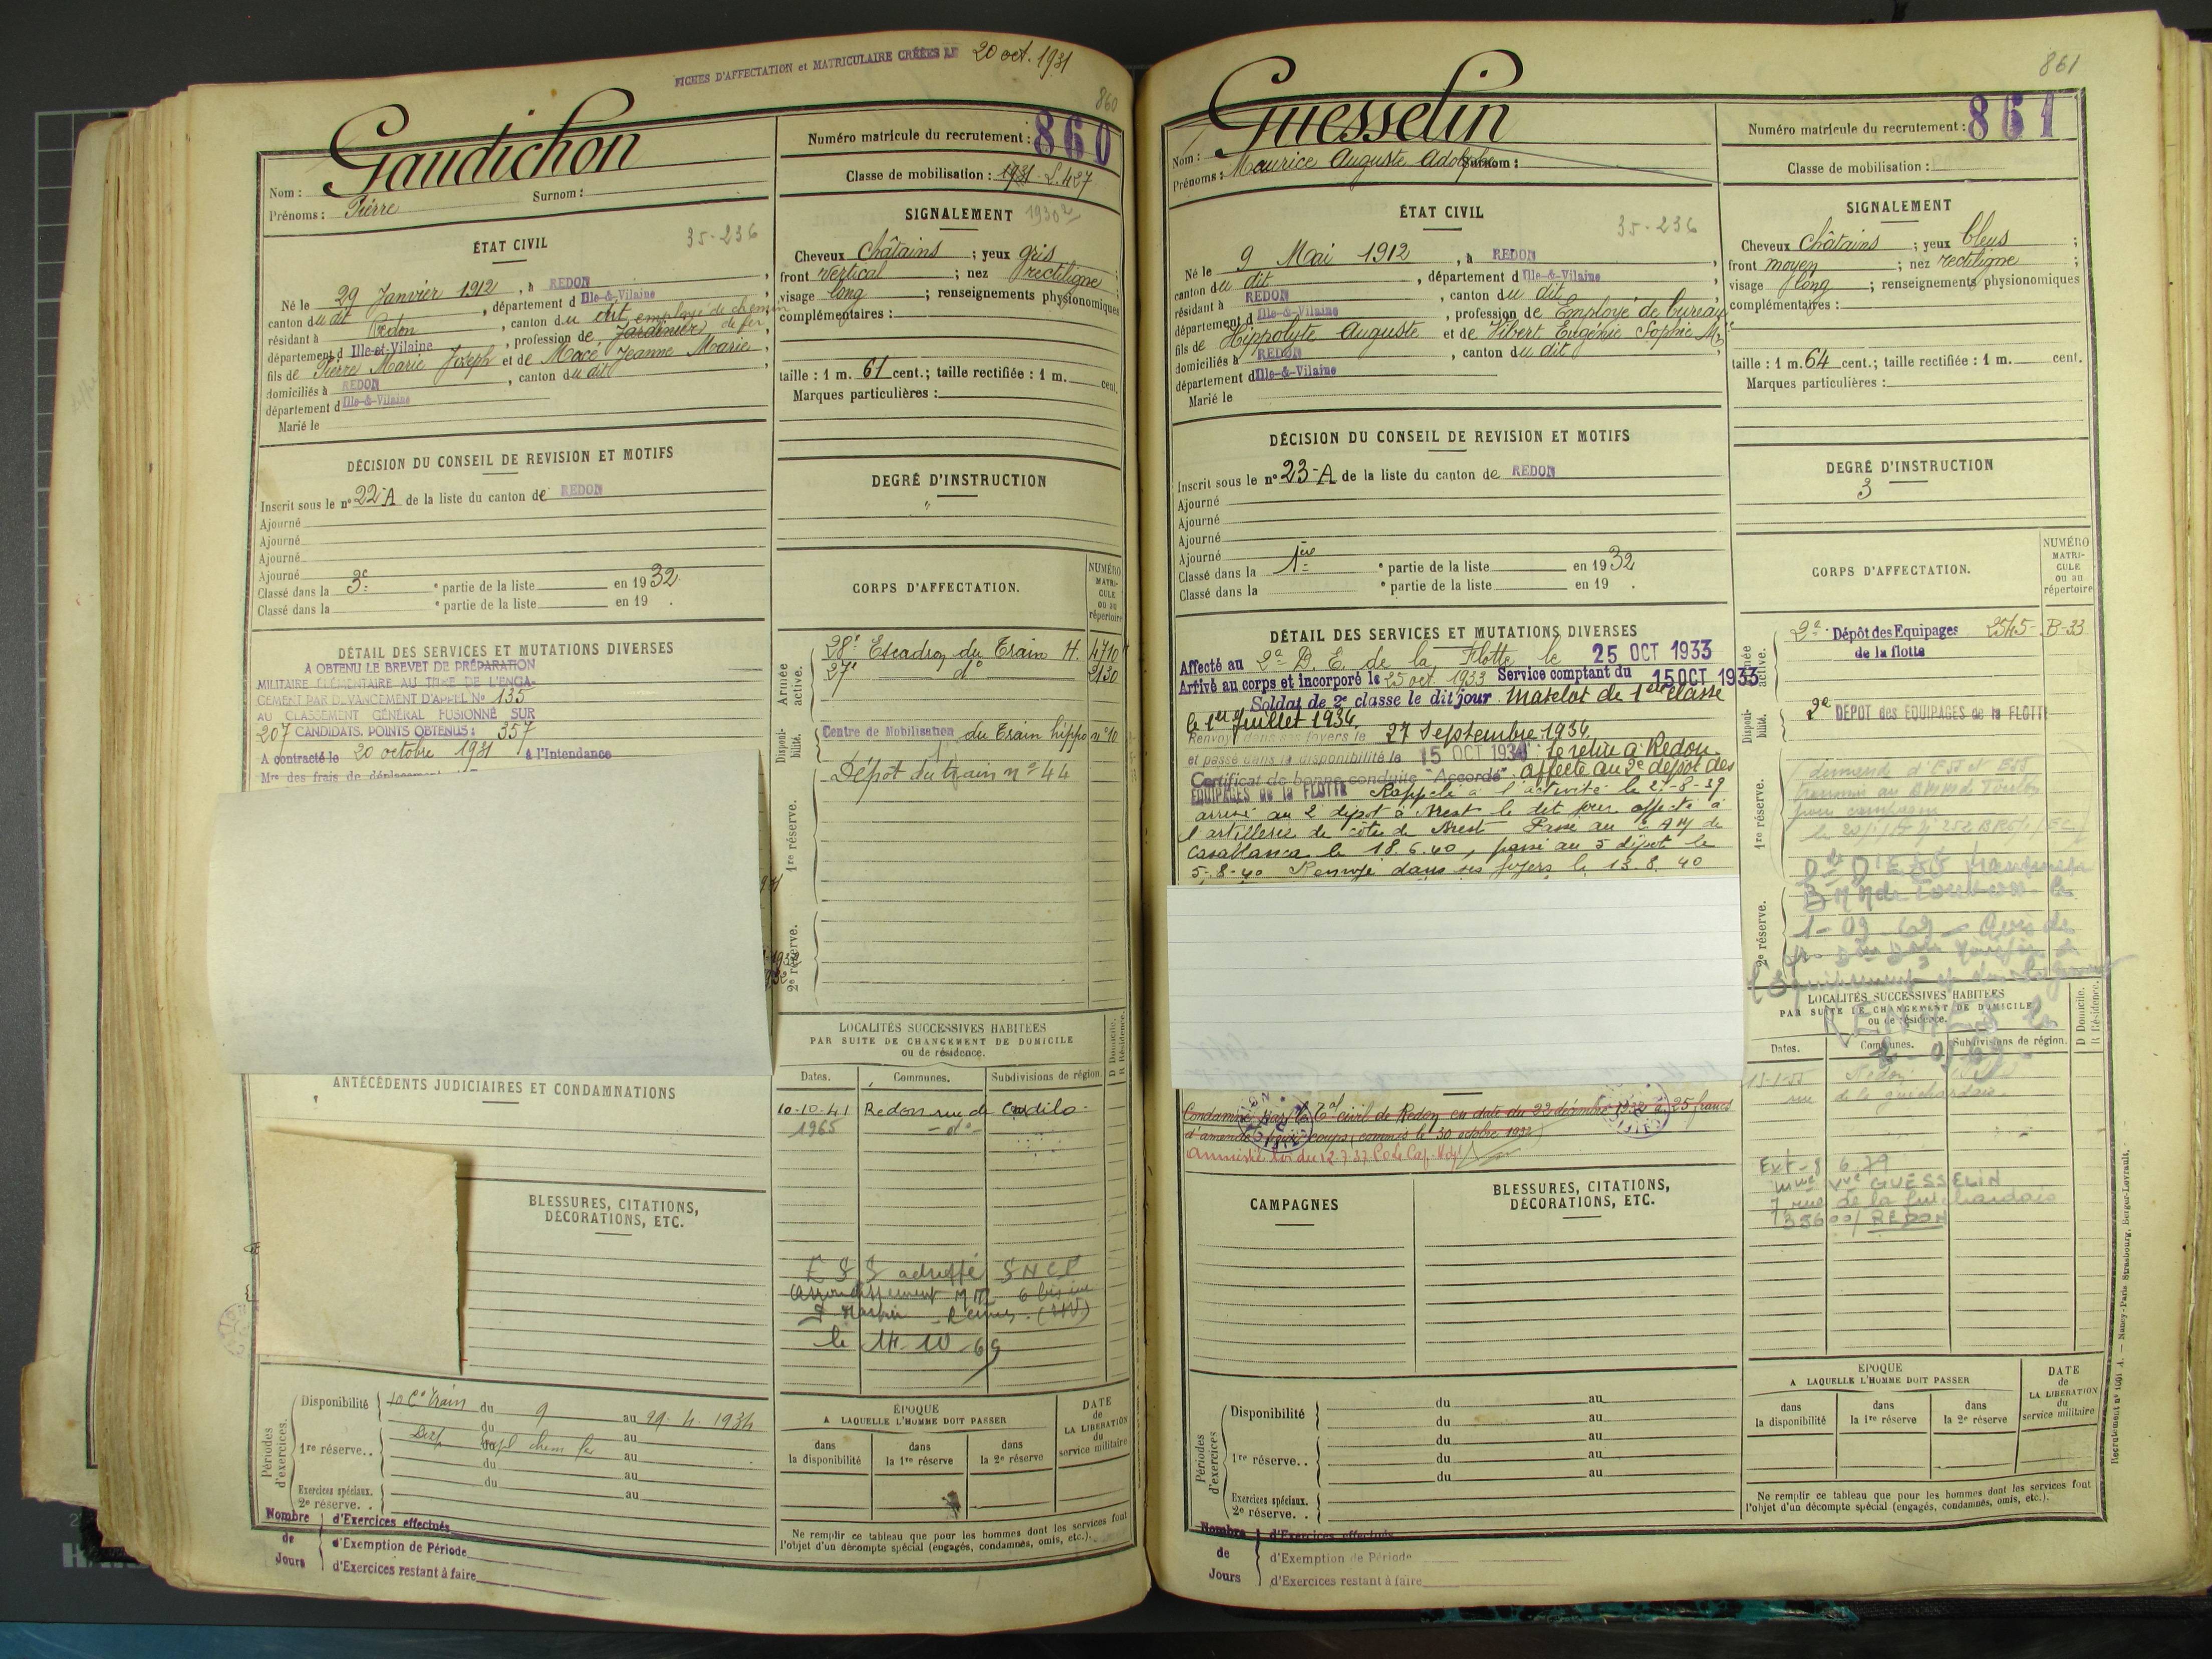 FICHES D'AFFECTATION et MATRICULAIRE CRÉÉES LE 20 oct. 1931
860
Gaudichon
Nom :
Prénoms : Pierre Surnom :
Numéro matricule du recrutement : 860
Classe de mobilisation : 1931 L.427
ÉTAT CIVIL
35-236
Né le 29 Janvier 1912, à REDON,
canton du dit, département d Ille-&-Vilaine
résidant à Redon, canton du dit employé de chemin
département d Ille-et-Vilaine, profession de Jardinier de fer
fils de Pierre Marie Joseph et de Macé Jeanne Marie,
domiciliés à REDON, canton du dit,
département d Ille-&-Vilaine
Marié le
SIGNALEMENT 1930
Cheveux châtains ; yeux gris ;
front vertical ; nez rectiligne ;
visage long ; renseignements physionomiques
complémentaires :
taille : 1 m. 61 cent. ; taille rectifiée : 1 m. cent.
Marques particulières :
DÉCISION DU CONSEIL DE REVISION ET MOTIFS
Inscrit sous le n° 22-A de la liste du canton de REDON
Ajourné
Ajourné
Ajourné
Ajourné
Classé dans la 3e ° partie de la liste en 1932
Classé dans la ° partie de la liste en 19 .
DEGRÉ D'INSTRUCTION
"
CORPS D'AFFECTATION.
NUMÉRO MATRI-CULE ou au répertoire
DÉTAIL DES SERVICES ET MUTATIONS DIVERSES
A OBTENU LE BREVET DE PRÉPARATION
MILITAIRE ÉLÉMENTAIRE AU TITRE DE L'ENGA-
GEMENT PAR DEVANCEMENT D'APPEL N° 135
AU CLASSEMENT GÉNÉRAL FUSIONNÉ SUR
207 CANDIDATS. POINTS OBTENUS : 357
A contracté le 20 octobre 1931 à l'Intendance
Mre des frais de déplacement
Armée active.
28e Escadron du Train H. 4710
27e do 2130
Disponibilité.
Centre de Mobilisation du Train hippo n°10
Dépôt du train n° 44
1re réserve.
2e réserve.
LOCALITÉS SUCCESSIVES HABITÉES
PAR SUITE DE CHANGEMENT DE DOMICILE
ou de résidence.
D Domicile. R Résidence.
Dates. Communes. Subdivisions de région.
10-10-41 Redon rue de
1965 - do -
E S S adressé SNCF
le 14-10-69
ANTÉCÉDENTS JUDICIAIRES ET CONDAMNATIONS
BLESSURES, CITATIONS,
DÉCORATIONS, ETC.
Périodes d'exercices.
Disponibilité 10 Cie Train du 9 au 29.4.1934
du au
1re réserve.. du au
du au
du au
Exercices spéciaux.
2e réserve. . au
Nombre de Jours
d'Exercices effectués
d'Exemption de Période
d'Exercices restant à faire
ÉPOQUE
A LAQUELLE L'HOMME DOIT PASSER
dans la disponibilité
dans la 1re réserve
dans la 2e réserve
DATE de LA LIBÉRATION du service militaire
Ne remplir ce tableau que pour les hommes dont les services font
l'objet d'un décompte spécial (engagés, condamnés, omis, etc.).
861
Guesselin
Nom :
Prénoms : Maurice Auguste Adolphe Surnom :
Numéro matricule du recrutement : 861
Classe de mobilisation :
ÉTAT CIVIL
35-236
Né le 9 Mai 1912, à REDON,
canton du dit, département d Ille-&-Vilaine
résidant à REDON, canton du dit
département d Ille-&-Vilaine, profession de Employé de bureau
fils de Hippolyte Auguste et de Hibert Eugénie Sophie Mie
domiciliés à REDON, canton du dit,
département d Ille-&-Vilaine
Marié le
SIGNALEMENT
Cheveux châtains ; yeux bleus ;
front moyen ; nez rectiligne ;
visage long ; renseignements physionomiques
complémentaires :
taille : 1 m. 64 cent. ; taille rectifiée : 1 m. cent.
Marques particulières :
DÉCISION DU CONSEIL DE REVISION ET MOTIFS
Inscrit sous le n° 23-A de la liste du canton de REDON
Ajourné
Ajourné
Ajourné
Ajourné
Classé dans la 1ère ° partie de la liste en 1932
Classé dans la ° partie de la liste en 19 .
DEGRÉ D'INSTRUCTION
3
CORPS D'AFFECTATION.
NUMÉRO MATRI-CULE ou au répertoire
DÉTAIL DES SERVICES ET MUTATIONS DIVERSES
Affecté au 2e D. E. de la Flotte le 25 OCT 1933
Arrivé au corps et incorporé le 25 oct. 1933 Service comptant du 15 OCT 1933
Soldat de 2e classe le dit jour. Matelot de 1ère classe
le 1er Juillet 1934.
Renvoyé dans ses foyers le 27 Septembre 1934
et passé dans la disponibilité le 15 OCT 1934 Se retire à Redon.
Certificat de bonne conduite "Accordé". Affecté au 2e dépôt des
ÉQUIPAGES de la FLOTTE Rappelé à l'activité le 27-8-39
arrivé au 2 dépôt à Brest le dit jour affecté à
l'artillerie de côte de Brest Passé au
Casablanca le 18.6.40, passé au 5 dépôt le
5-8-40 Renvoyé dans ses foyers le 13.8.40
Armée active.
2e Dépôt des Equipages 2545- B-33
de la flotte
Disponibilité.
2e DEPOT des EQUIPAGES de la FLOTTE
1re réserve.
2e réserve.
LOCALITÉS SUCCESSIVES HABITÉES
PAR SUITE DE CHANGEMENT DE DOMICILE
ou de résidence.
D Domicile. R Résidence.
Dates. Communes. Subdivisions de région.
Redon
rue de la guichardais
Ext-8 6.79
Mme Vve GUESSELIN
7 rue de la Guichardais
35600/ REDON
Condamné par le Tal civil de Redon en date du 22 décembre 1932 à 25 francs
d'amende pour coups (commis le 30 octobre 1932)
Amnistié Loi du 12.7.37
CAMPAGNES
BLESSURES, CITATIONS,
DÉCORATIONS, ETC.
Périodes d'exercices
Disponibilité du au
du au
1re réserve. . du au
du au
du au
Exercices spéciaux.
2e réserve. .
Nombre de Jours
d'Exercices effectués
d'Exemption de Période
d'Exercices restant à faire
ÉPOQUE
A LAQUELLE L'HOMME DOIT PASSER
dans la disponibilité
dans la 1re réserve
dans la 2e réserve
DATE de LA LIBÉRATION du service militaire
Ne remplir ce tableau que pour les hommes dont les services font
l'objet d'un décompte spécial (engagés, condamnés, omis, etc.).
Recrutement n° 1691 A. — Nancy-Paris Strasbourg, Berger-Levrault.